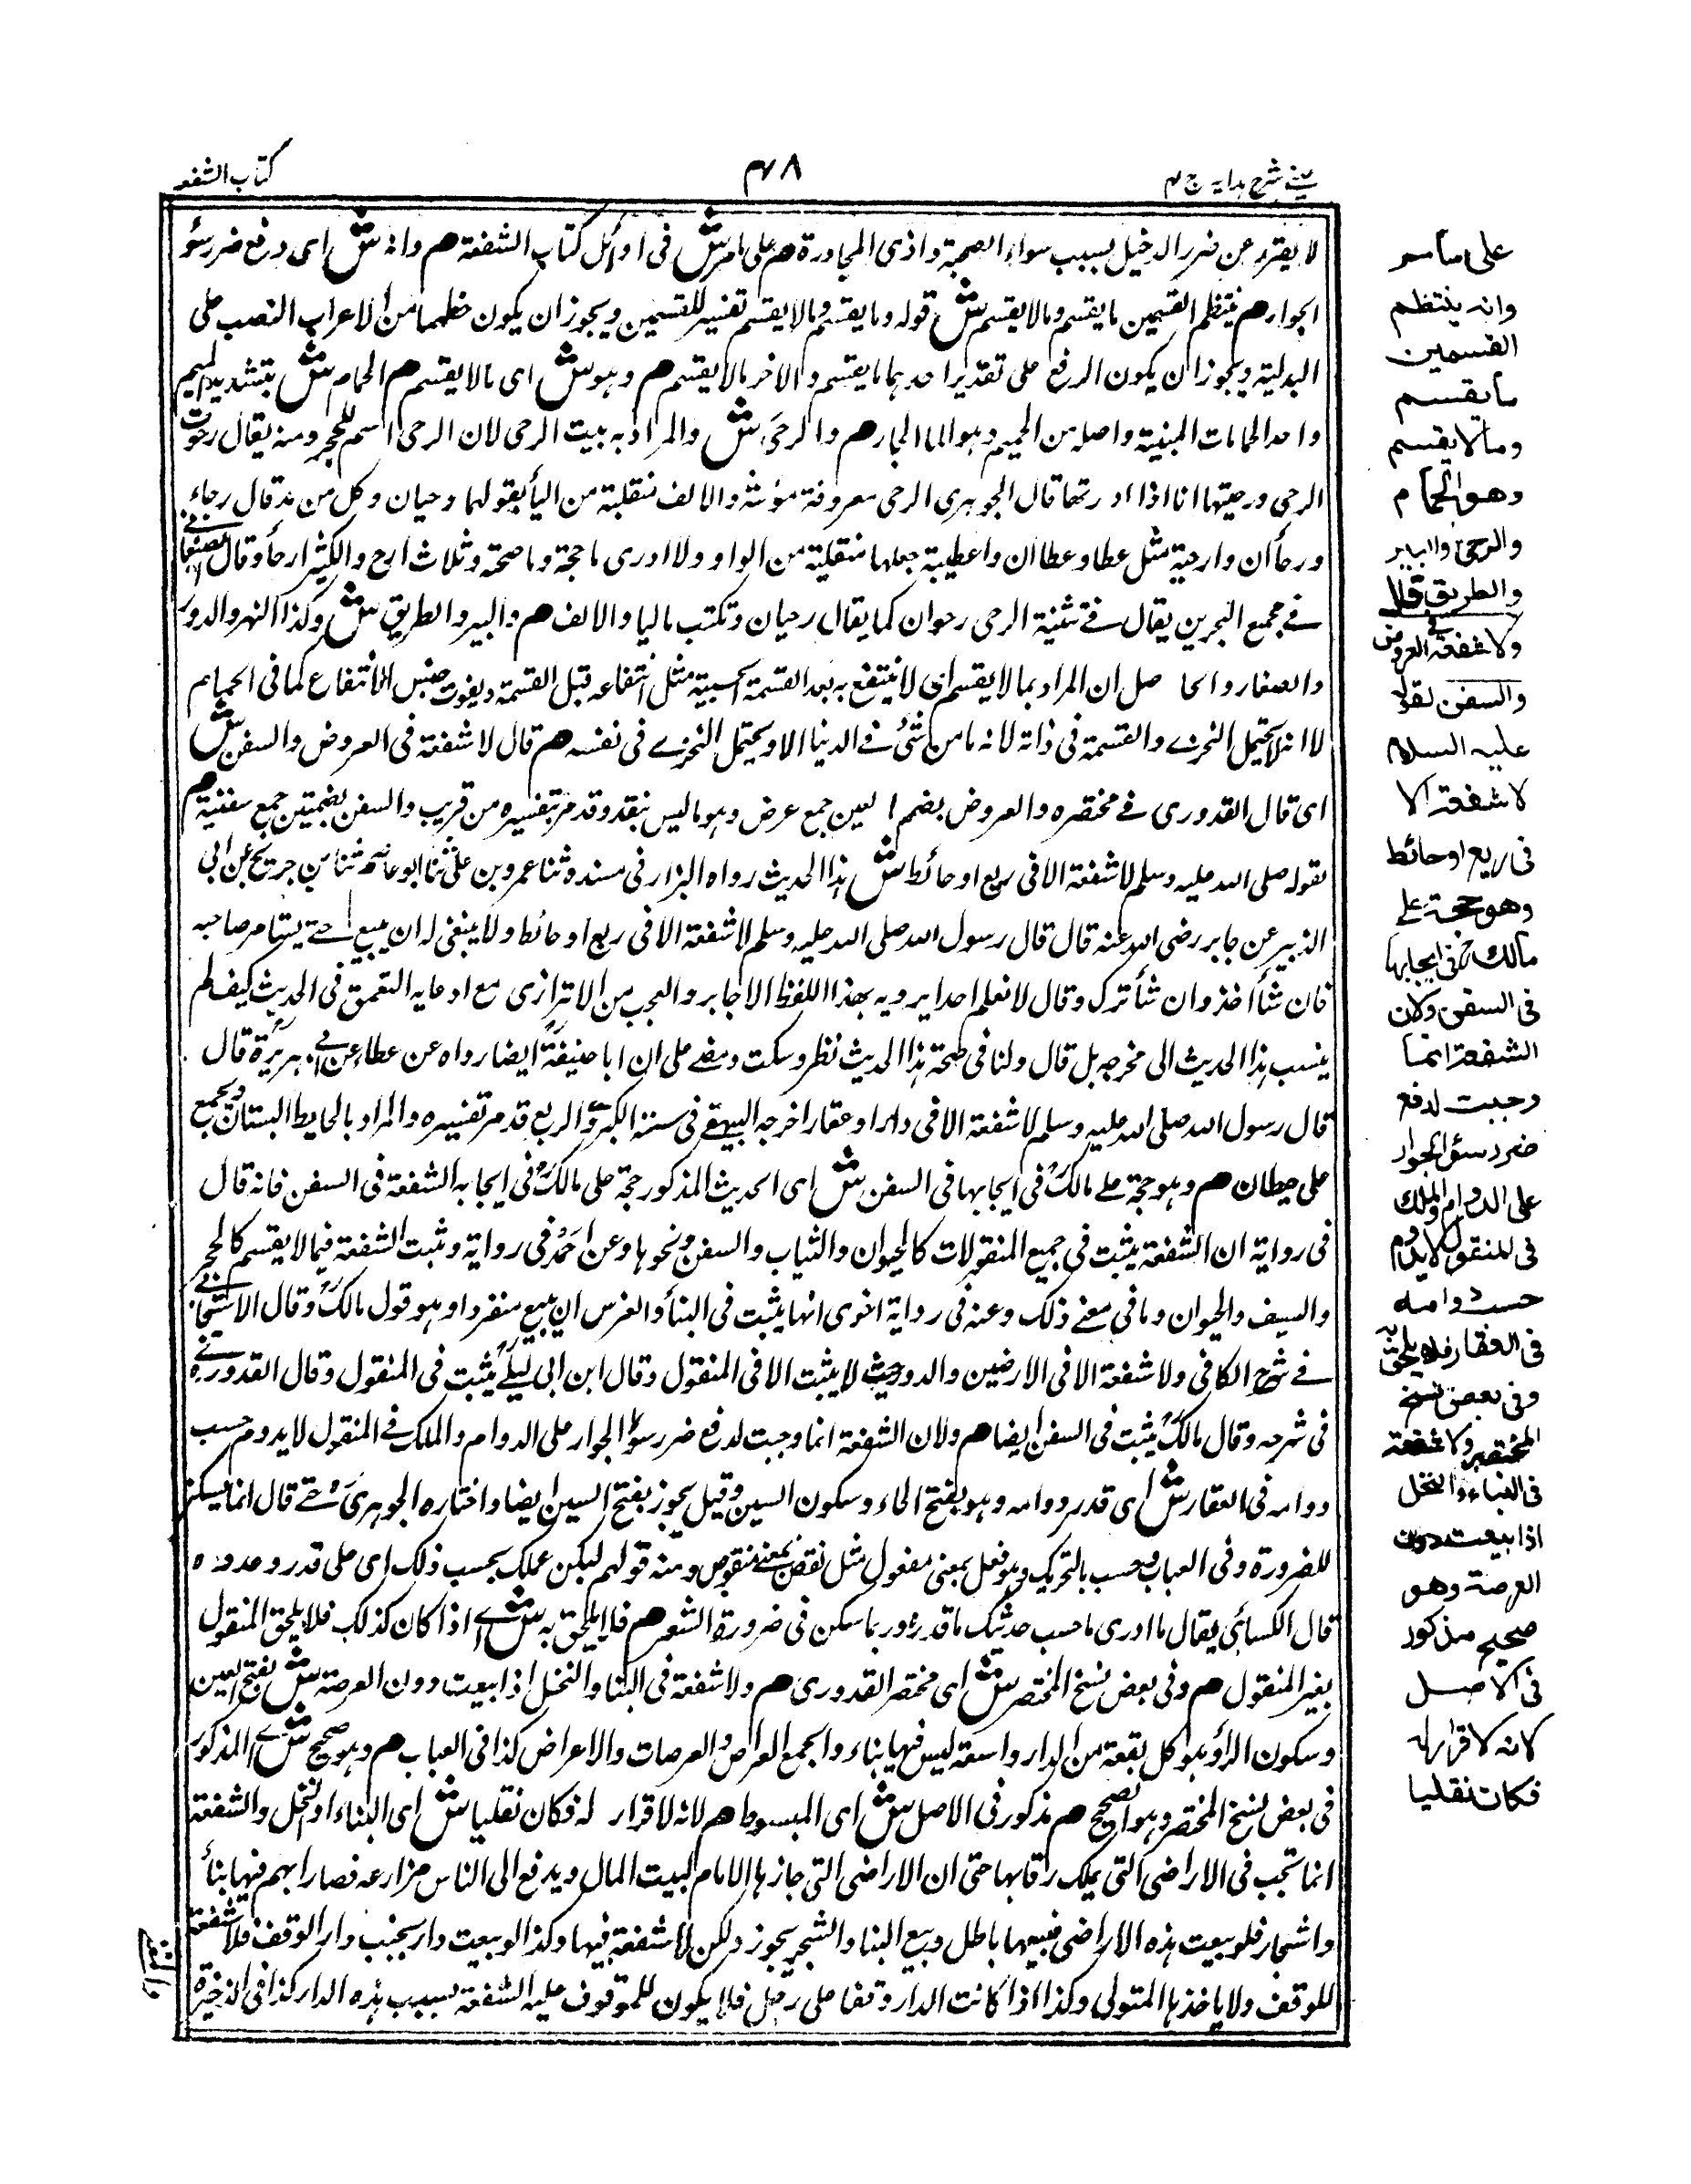 عيني شرح هدايه ج ٣
٣٨
كتاب الشفعه
لا يقدر عن ضرر الدخيل بسبب سواء الصحبة واذى المجاورة هم على ما مر ش فى اوائل كتاب الشفعة هم وانه ش اى دفع ضرر سوء
الجوار هم ينتظم القسمين ما يقسم وما لا يقسم ش قوله وما يقسم وما لا يقسم تفسير للقسمين ويجوز ان يكون حظهما من الاعراب النصب على
البدلية ويجوز ان يكون الرفع على تقدير احدهما ما يقسم والاخر ما لا يقسم هم وهو ش اى ما لا يقسم هم الحمام ش بتشديد الميم
واحد الحمامات المبنية واصله من الحميم وهو الماء الحار هم والرحى ش والمراد به بيت الرحى لان الرحى اسم للحجر ومنه يقال رحوت
الرحى ورحيتها انا اذا ادرتها قال الجوهرى الرحى معروفة مؤنثة والالف منقلبة من اليأ بقولهما رحيان وكل من مد قال رحاء
ورحاأن وارحية مثل عطا وعطاان واعطية جعلها منقلبة من الواو ولا ادرى ما حجته وما صحته وثلاث ارح والكثير ارحأ وقال الصنعانى
فى مجمع البحرين يقال فى تثنية الرحى رحوان كما يقال رحيان وتكتب باليا والالف هم والبير والطريق ش وكذا النهر والدور
والصغار والحاصل ان المراد بما لا يقسم اى لا ينتفع به بعد القسمة الحسية مثل انتفاعه قبل القسمة ويفوت جنس الانتفاع كما فى الحمام
لا انه لا يحتمل التجزى والقسمة فى ذاته لانه ما من شئ فى الدنيا الا ويحتمل التجزى فى نفسه هم قال لا شفعة فى العروض والسفن ش
اى قال القدورى فى مختصره والعروض بضم العين جمع عرض وهو ما ليس بنقد وقد مر تفسيره من قريب والسفن بضمتين جمع سفينة هم
لقوله صلى الله عليه وسلم لا شفعة الا فى ربع او حائط ش هذا الحديث رواه البزار فى مسنده ثنا عمرو بن على ثنا ابو عاصم ثنا ابن جريج عن ابى
الزبير عن جابر رضى الله عنه قال قال رسول الله صلى الله عليه وسلم لا شفعة الا فى ربع او حائط ولا ينبغى له ان يبيع حتى يستامر صاحبه
فان شأ اخذ وان شأ ترك وقال لا نعلم احدا يرويه بهذا اللفظ الا جابر والعجب من الاترازى مع ادعايه التعمق فى الحديث كيف لم
ينسب هذا الحديث الى مخرجه بل قال ولنا فى صحة هذا الحديث نظر وسكت ومضى على ان ابا حنيفة ايضا رواه عن عطاء عن ابى هريرة قال
قال رسول الله صلى الله عليه وسلم لا شفعة الا فى دار او عقار اخرجه البيهقى فى سننه الكبرى والربع قد مر تفسيره والمراد بالحايط البستان ويجمع
على حيطان هم وهو حجة على مالك فى ايجابها فى السفن ش اى الحديث المذكور حجة على مالك فى ايجابه الشفعة فى السفن فانه قال
فى رواية ان الشفعة يثبت فى جميع المنقولات كالحيوان والثياب والسفن ونحوها وعن احمد فى رواية وثبت الشفعة فيما لا يقسم كالحجر
والسيف والحيوان وما فى معنى ذلك وعنه فى رواية اخرى انها يثبت فى البنأ والغرس ان بيع منفردا وهو قول مالك وقال الاسبيجابى
فى شرح الكافى ولا شفعة الا فى الارضين والدور حيث لا يثبت الا فى المنقول وقال ابن ابى ليلى يثبت فى المنقول وقال القدورى
فى شرحه وقال مالك يثبت فى السفن ايضا هم ولان الشفعة انما وجبت لدفع ضرر سوء الجوار على الدوام والملك فى المنقول لا يدوم حسب
دوامه فى العقار ش اى قدر دوامه وهو بفتح الحاء وسكون السين وقيل يجوز بفتح السين ايضا واختاره الجوهرى حتى قال انما يسكن
للضرورة وفى العباب وحسب بالتحريك وهو فعل بمعنى مفعول مثل نقص بمعنى منقوص ومنه قولهم ليكن عملك بحسب ذلك اى على قدره وعدده
قال الكسائى يقال ما ادرى ما حسب حديثك ما قدره وربما سكن فى ضرورة الشعر هم فلا يلحق به ش اى اذا كان كذلك فلا يلحق المنقول
بغير المنقول هم وفى بعض نسخ المختصر ش اى مختصر القدورى هم ولا شفعة فى البنا والنخل اذا بيعت دون العرصة ش بفتح العين
وسكون الرأ وهو كل بقعة من الدار واسعة ليس فيها بناء والجمع العراص والعرصات والاعراض كذا فى العباب هم وهو صحيح ش اى المذكور
فى بعض نسخ المختصر وهو الصحيح هم مذكور فى الاصل ش اى المبسوط هم لانه لا قرار له فكان نقليا ش اى البناء او النخل والشفعة
انما تجب فى الاراضى التى يملك رقابها حتى ان الاراضى التى حازها الامام لبيت المال ويدفع الى الناس مزارعه فصار ابهم فيها بنأ
واشجار فلو بيعت هذه الاراضى فبيعها باطل وبيع البنا والشجر يجوز ولكن لا شفعة فيها وكذا لو بيعت دار بجنب دار الوقف فلا شفعة
للوقف ولا ياخذها المتولى وكذا اذا كانت الدار وقفا على رجل فلا يكون للموقوف عليه الشفعة بسبب هذه الدار كذا فى الذخيرة
على ما مر
وانه ينتظم
القسمين
ما يقسم
وما لا يقسم
وهو الحمام
والرحى والبير
والطريق قال
ولا شفعة فى العروض
والسفن لقوله
عليه السلام
لا شفعة الا
فى ربع او حائط
وهو حجة على
مالك فى ايجابها
فى السفن ولان
الشفعة انما
وجبت لدفع
ضرر سوء الجوار
على الدوام والملك
فى المنقول لا يدوم
حسب دوامه
فى العقار فلا يلحق به
وفى بعض نسخ
المختصر ولا شفعة
فى البناء والنخل
اذا بيعت دون
العرصة وهو
صحيح مذكور
فى الاصل
لانه لا قرار له
فكان نقليا